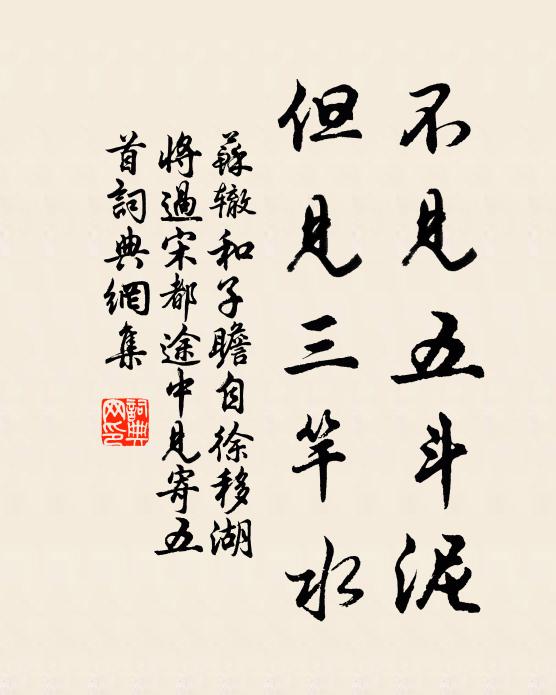 不見五斗泥
但見三竿水
蘇轍和子瞻自徐移湖
將過宋都途中見寄五
首詞典網集
詞典
网印